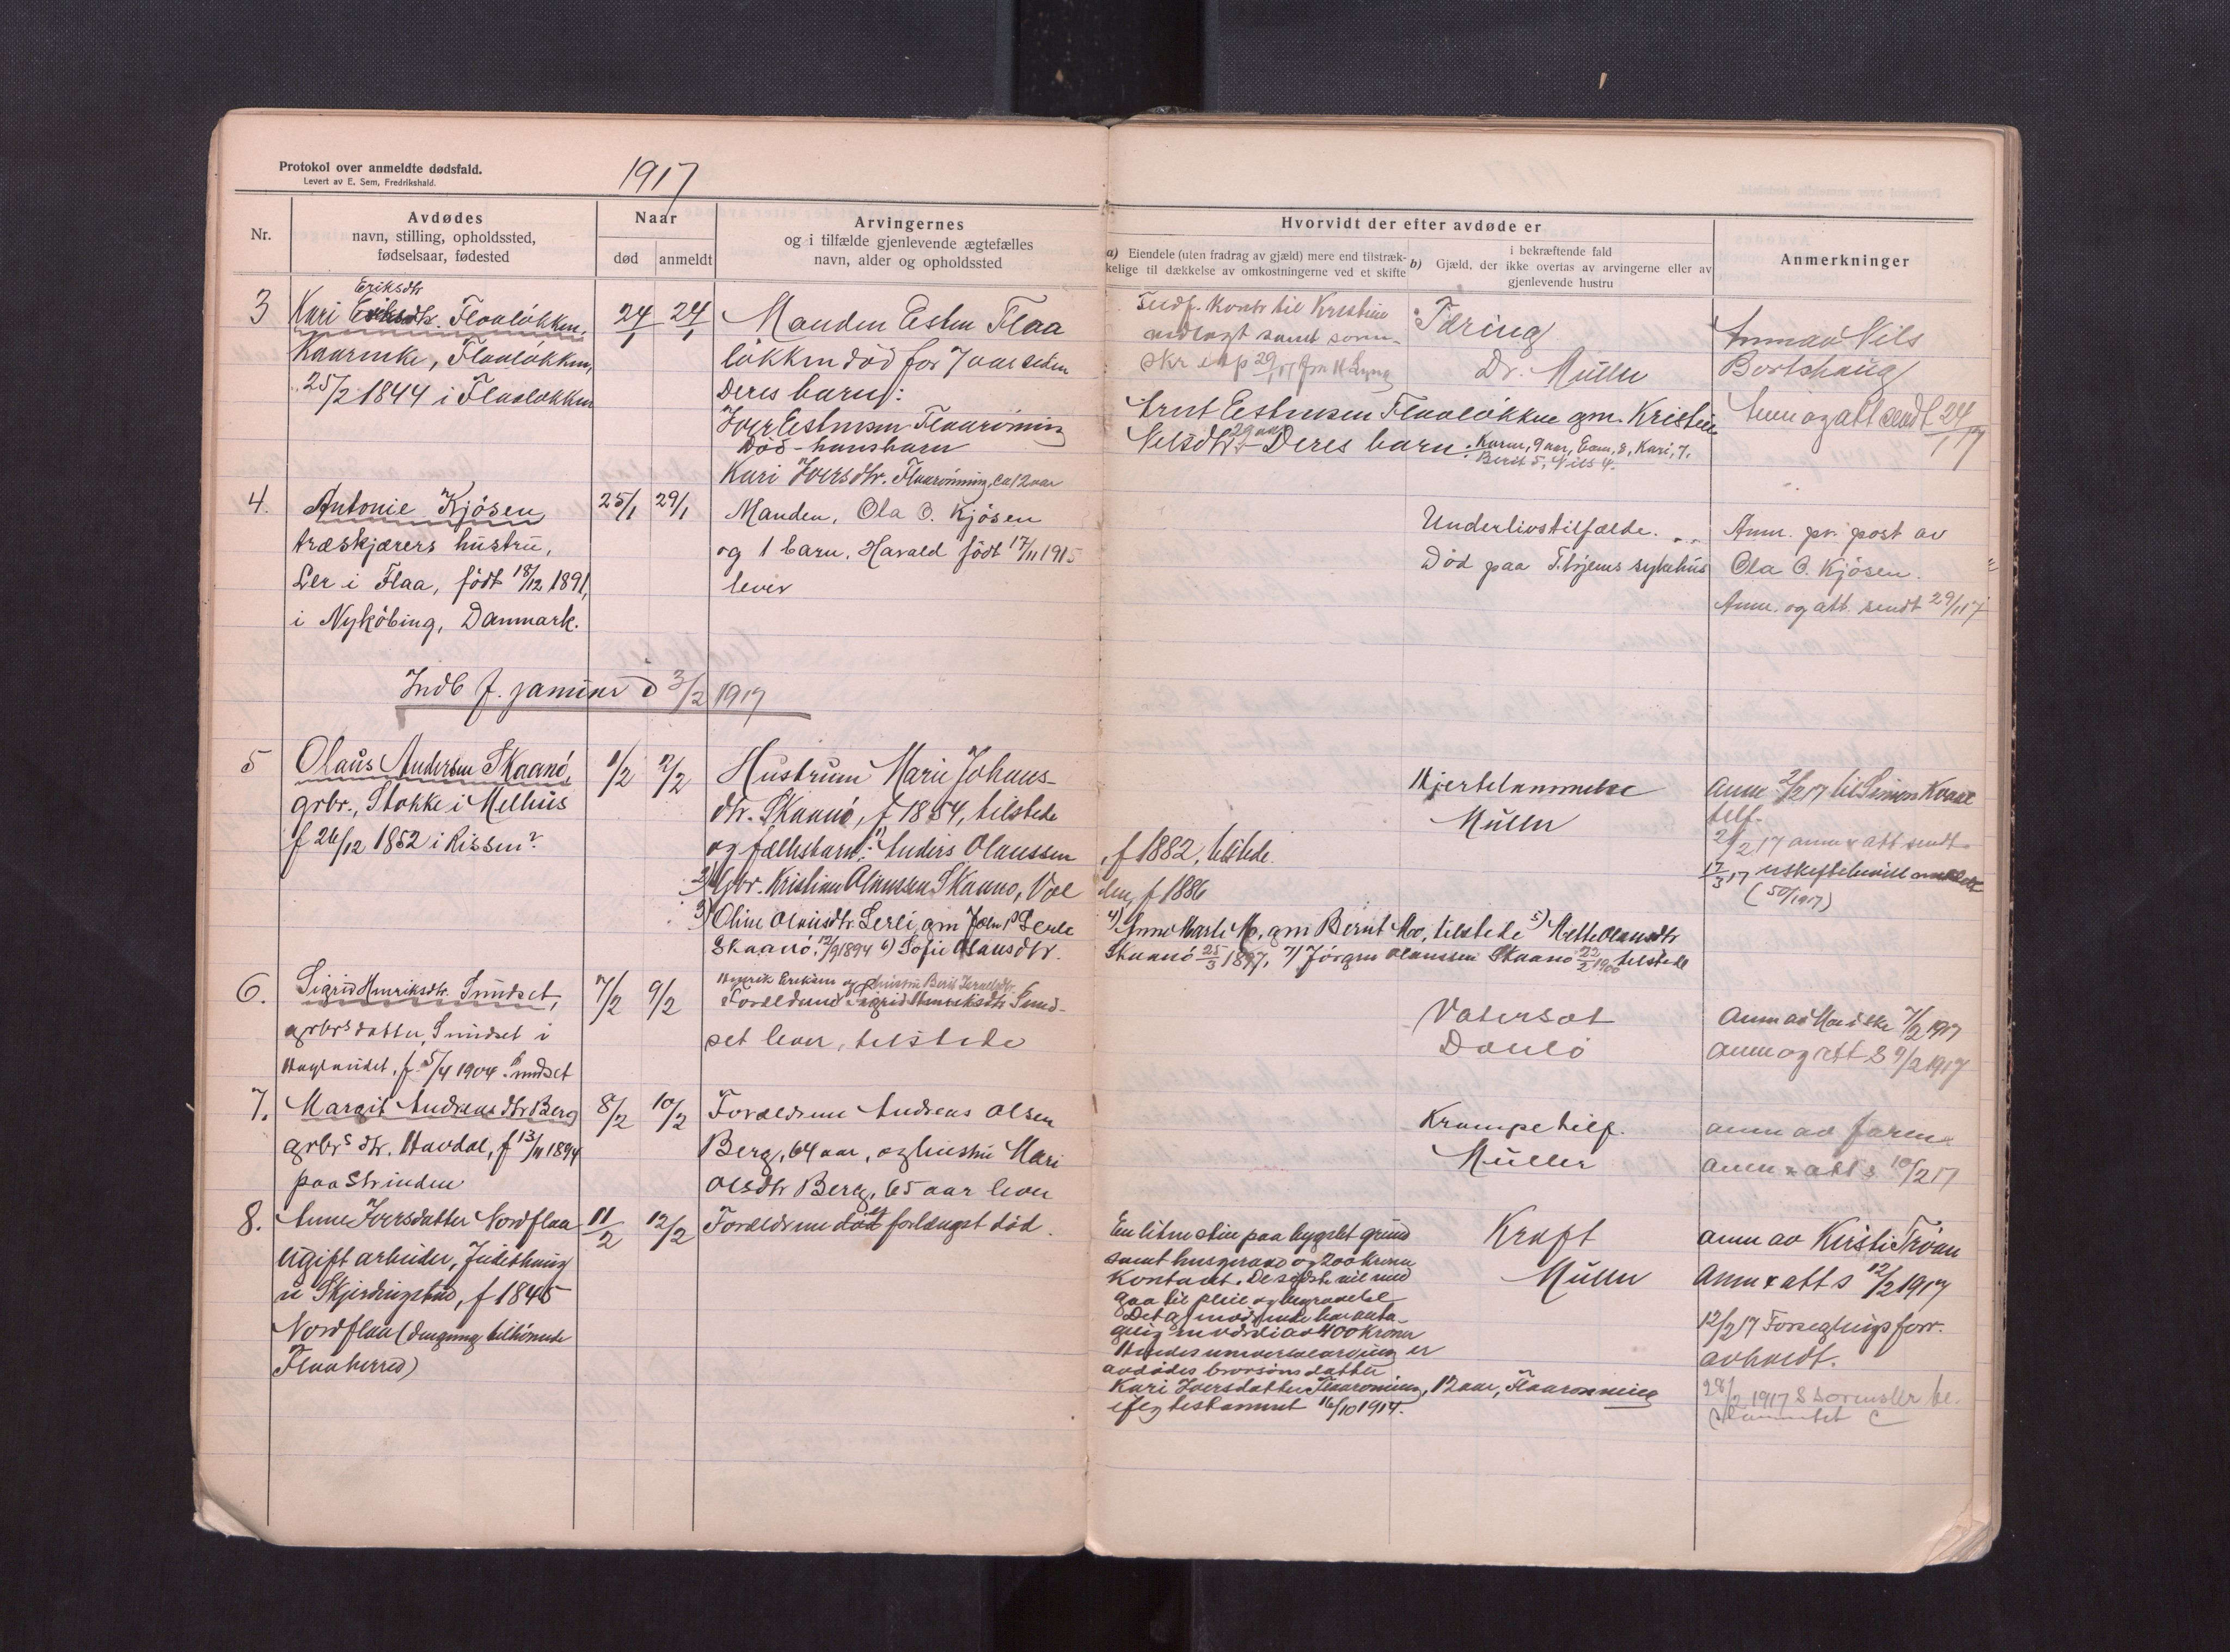 Protokol over anmeldte dødsfald.
Levert av E. Sem, Fredrikshald.
1917
Nr.
Avdødes
navn, stilling, opholdssted,
fødselsaar, fødested
Naar
død
anmeldt
Arvingernes
og i tilfælde gjenlevende ægtefælles
navn, alder og opholdssted
Hvorvidt der efter avdøde er
a) Eiendele (uten fradrag av gjæld) mere end tilstræk-
kelige til dækkelse av omkostningerne ved et skifte
b) Gjæld, der
i bekræftende fald
ikke overtas av arvingerne eller av
gjenlevende hustru
Anmerkninger
3
Eriksdtr
Kari Flaaløkken,
Flaaløkken,
25/2 1844 i Flaaløkken
24/1
24/1
Manden Esten Flaa
løkken død for 7 aar siden
Deres barn:
Iver Estensen Flaarønning
Død - hans barn
Kari Iversdtr. Flaarønning, ca 12 aar
til Kristine
samt
Tæring
Dr. Müller
Arnt Estensen Flaaløkken gm. Kristine
Nilsdtr 29 aar - Deres barn: Karen, 9 aar, 8, Kari, 7.
Berit 5, Nils 4.
Anm av Nils
Bortshaug
Anm og att sendt 24/1 17
4.
Antonie Kjøsen
træskjærers hustru,
Ler i Flaa, født 18/12 1891,
i Nykøbing, Danmark.
25/1
29/1
Manden, Ola O. Kjøsen
og 1 barn, Harald født 17/11 1915
lever
Underlivstilfælde.
Død paa T.hjems sykehus
Anm. pr. post av
Ola O. Kjøsen.
Anm. og att. sendt 29/1 17
Indb f. januar d 3/2 1917
5
Olaus Andersen Skaanø,
grbr., Stokke i Melhus
f 26/12 1852 i Rissen?
1/2
2/2
Hustruen Marie Johans-
dtr. Skaanø, f 1854, tilstede
og fællesbarn: 1) Anders Olaussen
, f 1882, tilstede.
2) Gbr. Kristian Olaussen Skaanø,
f 1886
3) Oline Olausdtr. Lerli, gm John Lerli
4) Anne Marte Mo, gm Bernt Moo, tilstede 5) Mette Olausdtr
Skaanø, 12/9 1894 6) Sofie Olausdtr.
Skaanø 25/3 1897, 7) Jørgen Olaussen Skaanø 22/2 1900 tilstede
Hjertelammelse
Müller
Anm 2/2 17 til Simon
telf.
2/2 17 anm & att sendt
17/3 17
(50/1917)
6.
Sigrid Henriksdtr. Sundset,
grbrs datter, Sundset i
f. 5/4 1904 Sundset
7/2
9/2
Henrik Eriksen og hustru Berit
Forældrene Sigrid Henriksdtr Sund-
set lever, tilstede
Vatersot
Daulø
7/2 1917
Anm og att S 9/2 1917
7.
Margit Andreasdtr Berg
grbrs dtr. Havdal, f 13/11 1894
paa Strinden
8/2
10/2
Forældrene Andreas Olsen
Berg, 64 aar, og hustru Mari
Olsdtr Berg, 65 aar lever
Krampetilf.
Müller
anm av faren
anm & att s. 10/2 17
8.
Anne Iversdatter Nordflaa
Ugift arbeider,
f 1845
Nordflaa
Flaa herred)
11/2
12/2
Forældrene forlængst død.
En liten stue paa bygslet grund
samt husgeraad og 200 kroner
kontant. De sidste vil med
gaa til pleie og begravelse
400 kroner
Hendes universalarving er
avdødes brorsøns datter
Kari Iversdatter Flaarønning, 12 aar, Flaarønning
ifølg testament 16/10 1914.
Kræft
Müller
anm av Kirsti Trøan
Anm & att s 12/2 1917
12/2 17 Forseglings forr.
avholdt.
28/2 1917